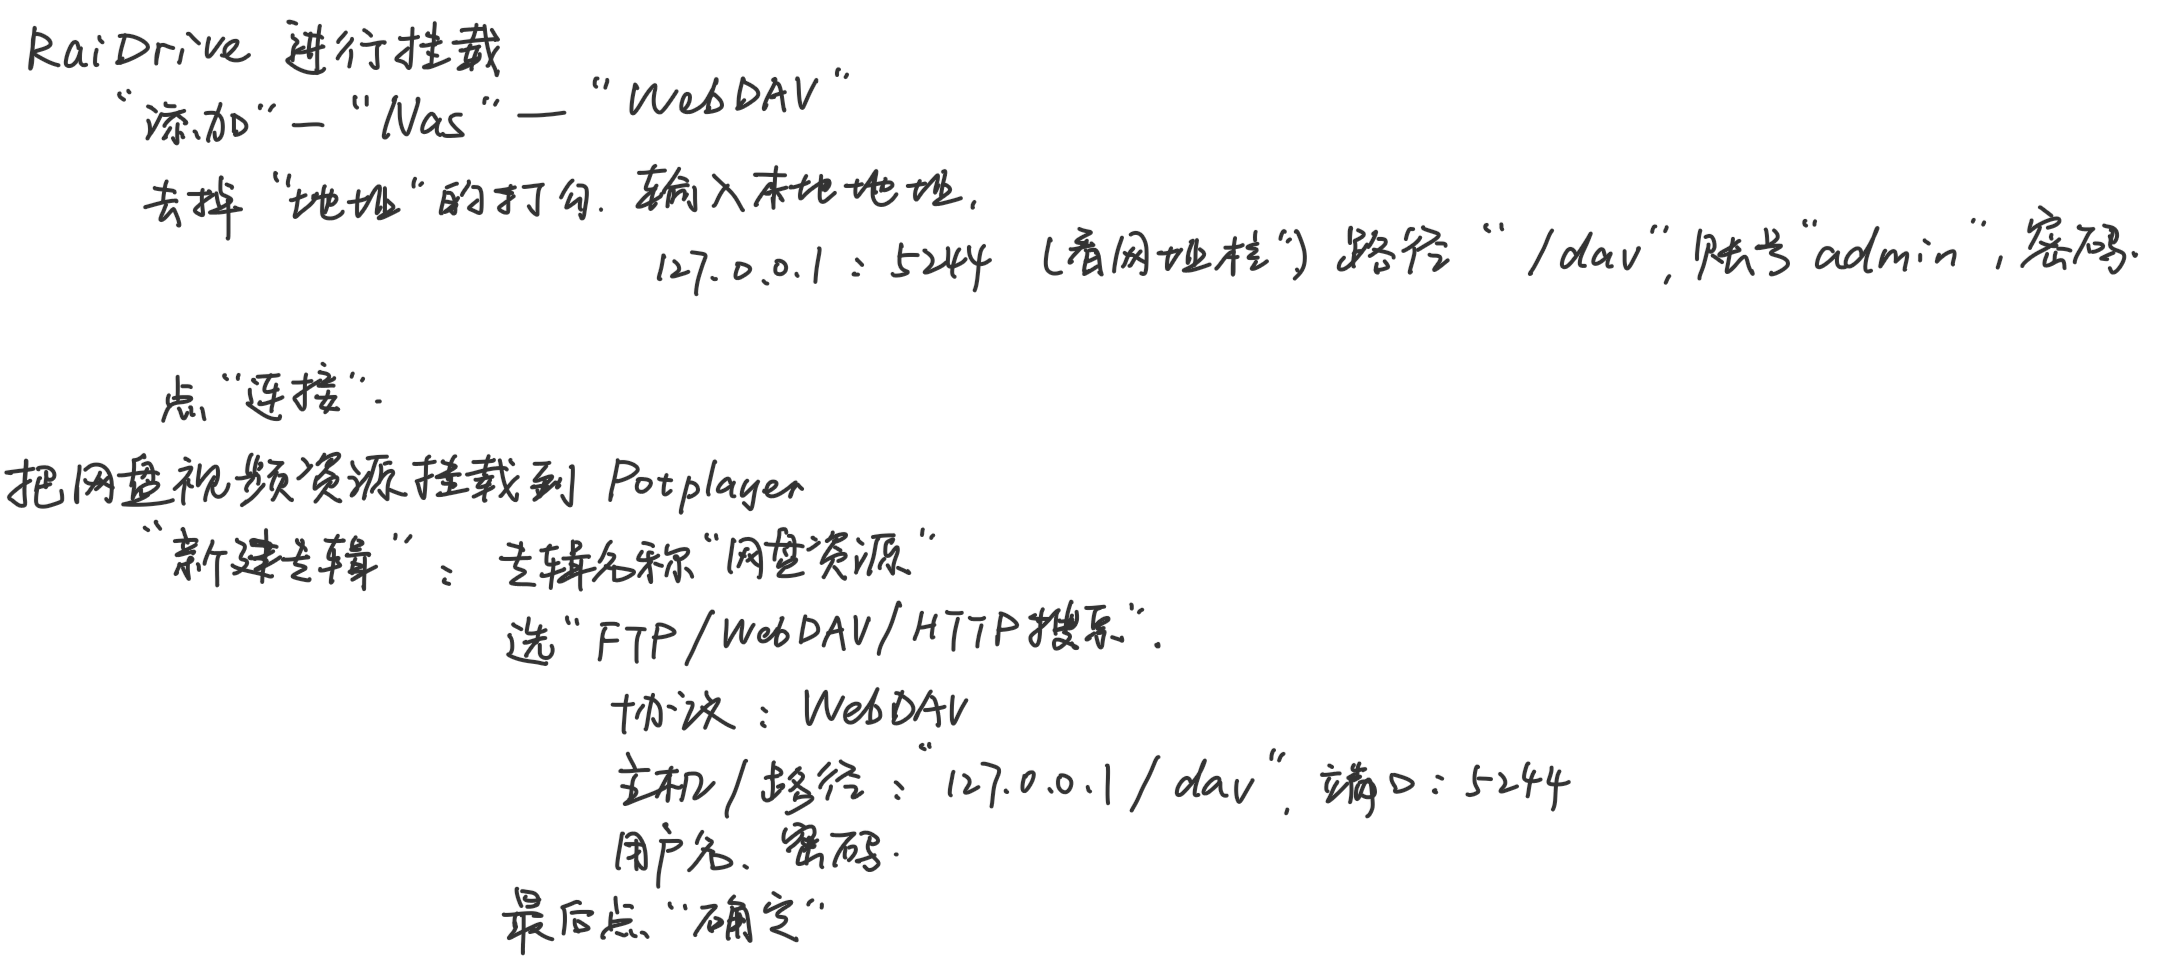 RaiDrive 进行挂载
“添加”—“Nas”—“WebDAV”
去掉“地址”的打勾. 输入本地地址,
127.0.0.1:5244 (看网址栏”) 路径“/dav”, 账号“admin”, 密码.
点“连接”.
把网盘视频资源挂载到 Potplayer
“新建专辑”: 专辑名称“网盘资源”
选“FTP/WebDAV/HTTP搜索”.
协议: WebDAV
主机/路径:“127.0.0.1/dav”, 端口: 5244
用户名、密码.
最后点“确定”